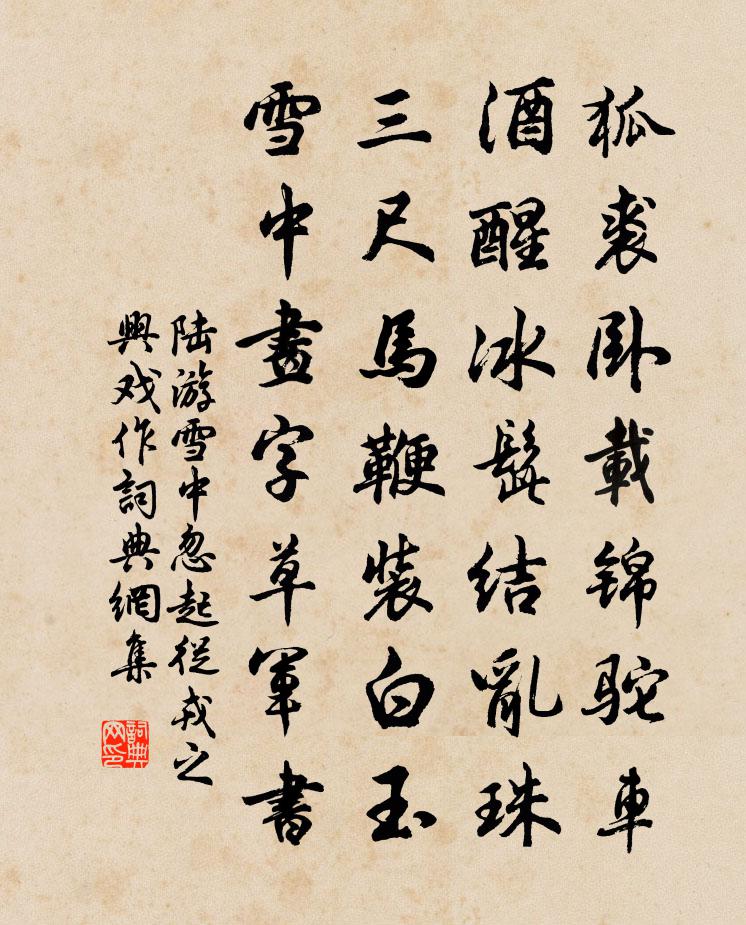 狐裘卧載锦駝車
酒醒冰髭结亂珠
三尺馬鞭裝白玉
雪中畫字草軍書
陆游雪中忽起從戎之
興戏作詞典網集
詞典
网印